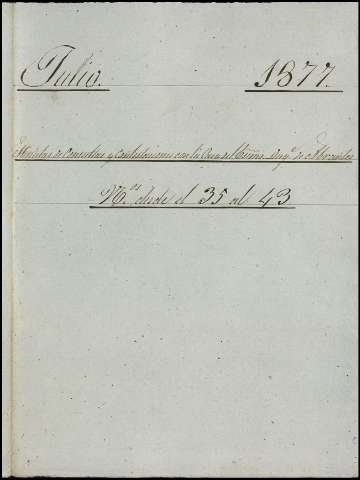 Julio. 1877.
Minutas de Consultas y Contestaciones con la Casa del Exmo. Duq.e de Abrantes
N.os desde el 35 al 43